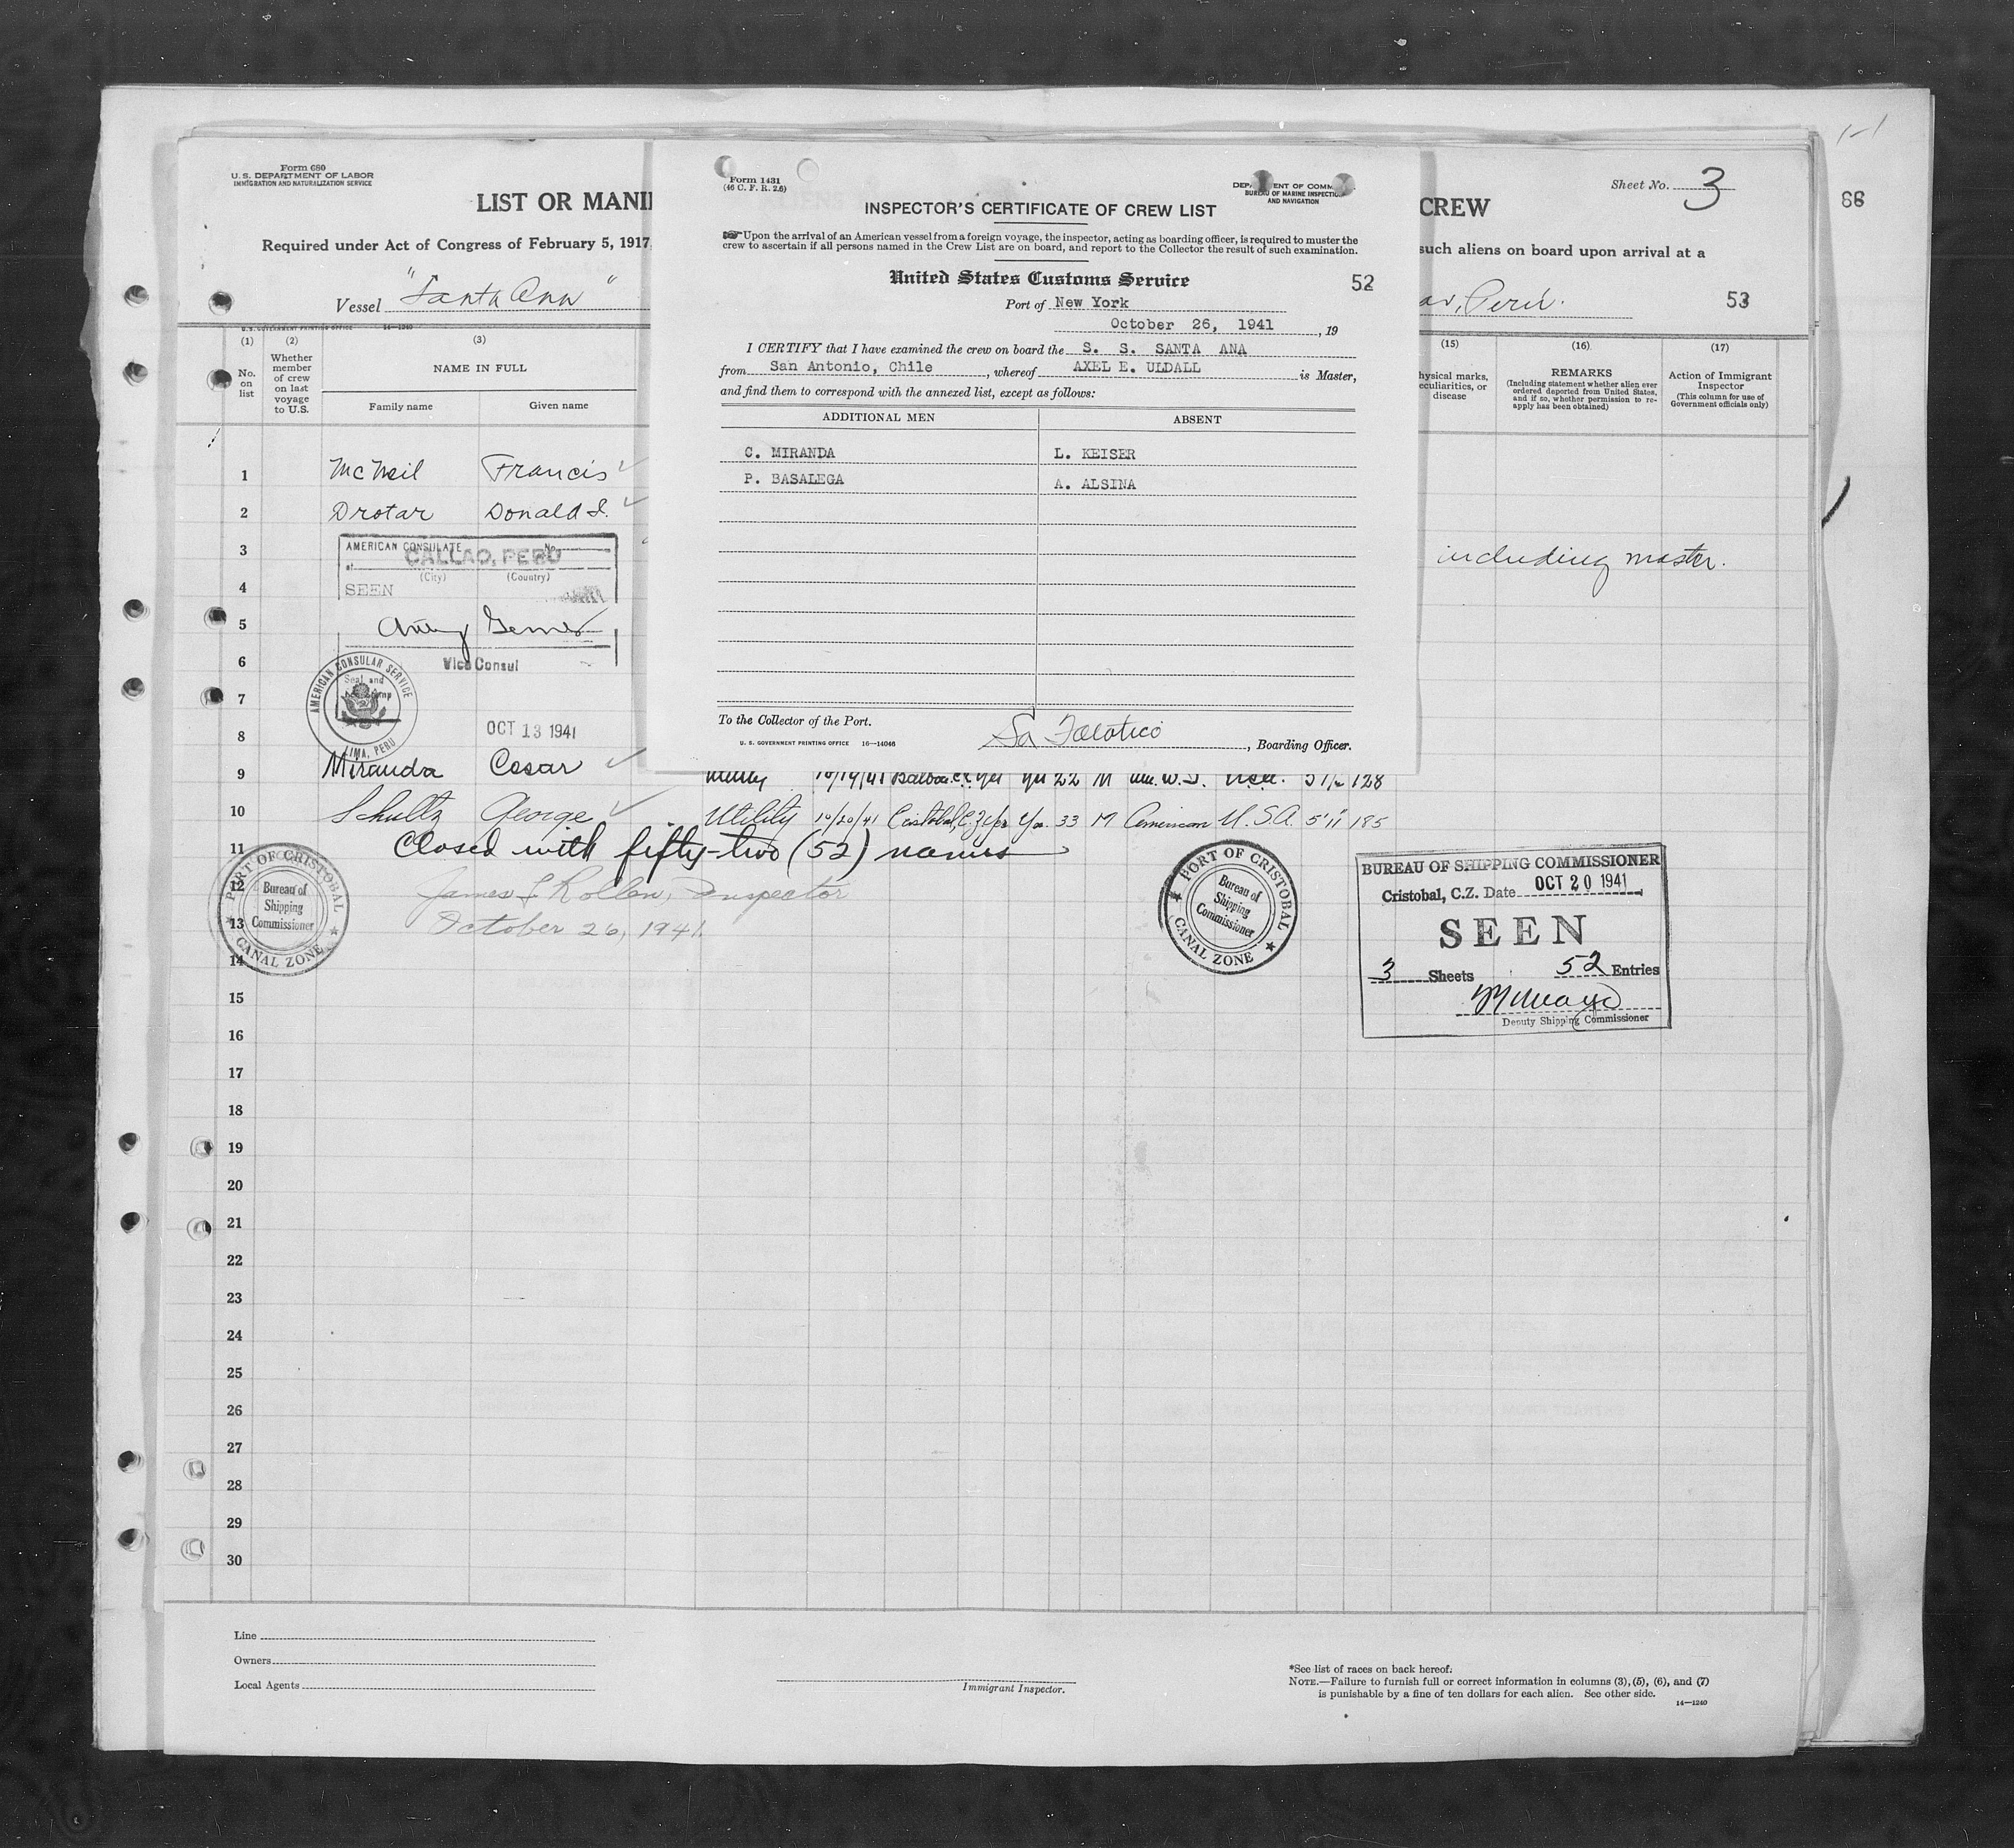 Form 680
U. S. DEPARTMENT OF LABOR
IMMIGRATION AND NATURALIZATION SERVICE
LIST OR MANI
CREW
Sheet No. 3
88
Required under Act of Congress of February 5, 1917,
such aliens on board upon arrival at a
Vessel "Santa Ana"
Perú.
53
U. S. GOVERNMENT PRINTING OFFICE 14—1240
(1) (2) (3)
No. on list
Whether member of crew on last voyage to U.S.
NAME IN FULL
Family name Given name
(15) (16) (17)
hysical marks, eculiarities, or disease
REMARKS
(Including statement whether alien ever ordered deported from United States, and if so, whether permission to re-apply has been obtained)
Action of Immigrant Inspector
(This column for use of Government officials only)
Form 1431
(46 C. F. R. 2.6)
DEP ENT OF COMM
BUREAU OF MARINE INSPECTIO
AND NAVIGATION
INSPECTOR'S CERTIFICATE OF CREW LIST
Upon the arrival of an American vessel from a foreign voyage, the inspector, acting as boarding officer, is required to muster the
crew to ascertain if all persons named in the Crew List are on board, and report to the Collector the result of such examination.
United States Customs Service
52
Port of New York
October 26, 1941, 19
I CERTIFY that I have examined the crew on board the S. S. SANTA ANA
from San Antonio, Chile, whereof AXEL E. ULDALL is Master,
and find them to correspond with the annexed list, except as follows:
ADDITIONAL MEN ABSENT
C. MIRANDA L. KEISER
P. BASALEGA A. ALSINA
To the Collector of the Port.
U. S. GOVERNMENT PRINTING OFFICE 16—14046
, Boarding Officer.
1 McNeil Francis
2 Drotar Donald I.
3
AMERICAN CONSULATE No.
at CALLAO, PERU
(City) (Country)
including master.
4
SEEN
5
6
Vice Consul
7
AMERICAN CONSULAR SERVICE
LIMA, PERU
8
OCT 13 1941
9 Miranda Cesar Utility 10/19/41 Balboa C.Z. Yes Yes 22 M U.S.A. 128
10 Schultz George Utility 10/20/41 Cristobal, C.Z. Yes Yes 33 M American U.S.A. 5'11 185
11 Closed with fifty-two (52) names
12
James Rollen, Inspector
13
October 26, 1941
14
PORT OF CRISTOBAL
Bureau of Shipping Commissioner
CANAL ZONE
PORT OF CRISTOBAL
Bureau of Shipping Commissioner
CANAL ZONE
BUREAU OF SHIPPING COMMISSIONER
Cristobal, C.Z. Date OCT 20 1941
SEEN
3 Sheets 52 Entries
Deputy Shipping Commissioner
15
16
17
18
19
20
21
22
23
24
25
26
27
28
29
30
Line
Owners
Local Agents
Immigrant Inspector.
*See list of races on back hereof.
NOTE.—Failure to furnish full or correct information in columns (3), (5), (6), and (7)
is punishable by a fine of ten dollars for each alien. See other side.
14—1240